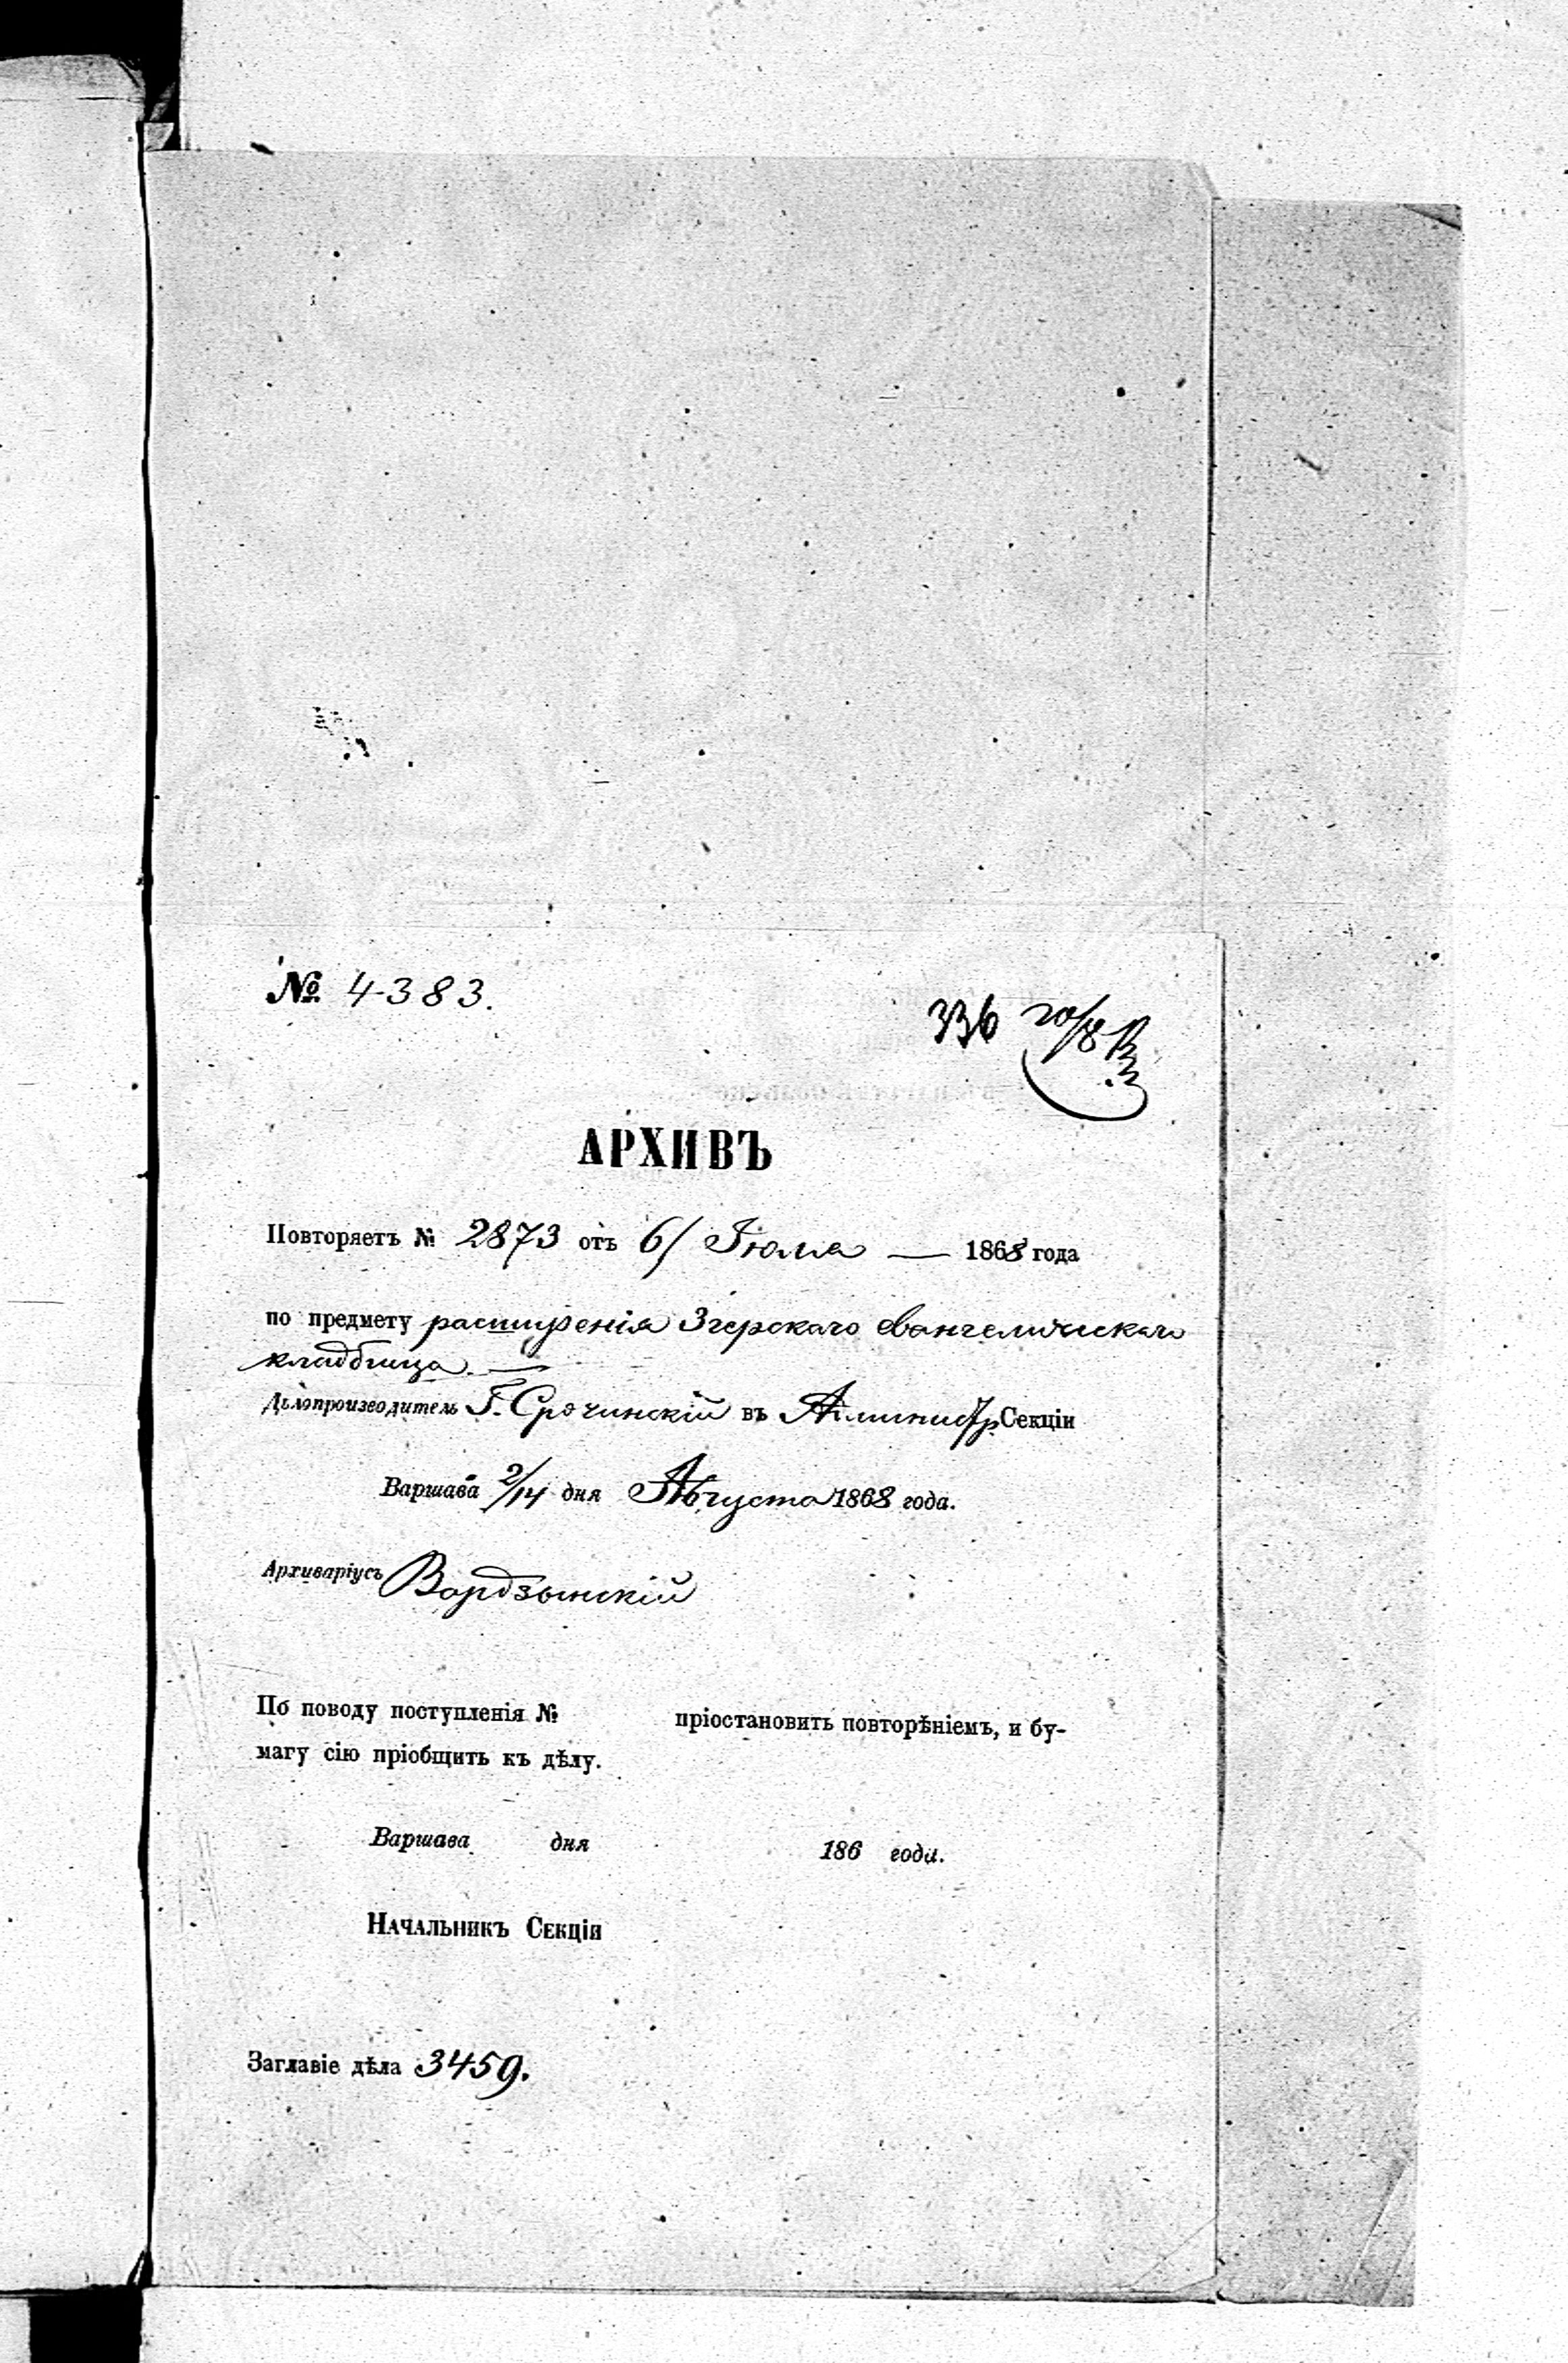 № 4383.
336 20/8
АРХИВЪ
Повторяетъ № 2873 отъ 6/ Іюля — 1868 года
по предмету расширенія Згерскаго евангелическаго
кладбища. —
Дѣлопроизводитель Г. Срочинскій въ Админист. Секціи
Варшава 2/14 дня Августа 1868 года.
Архиваріусъ Вордзынскій
По поводу поступленія № пріостановить повторѣніемъ, и бу-
магу сію пріобщить къ дѣлу.
Варшава дня 186 года.
Начальникъ Секціи
Заглавіе дѣла 3459.